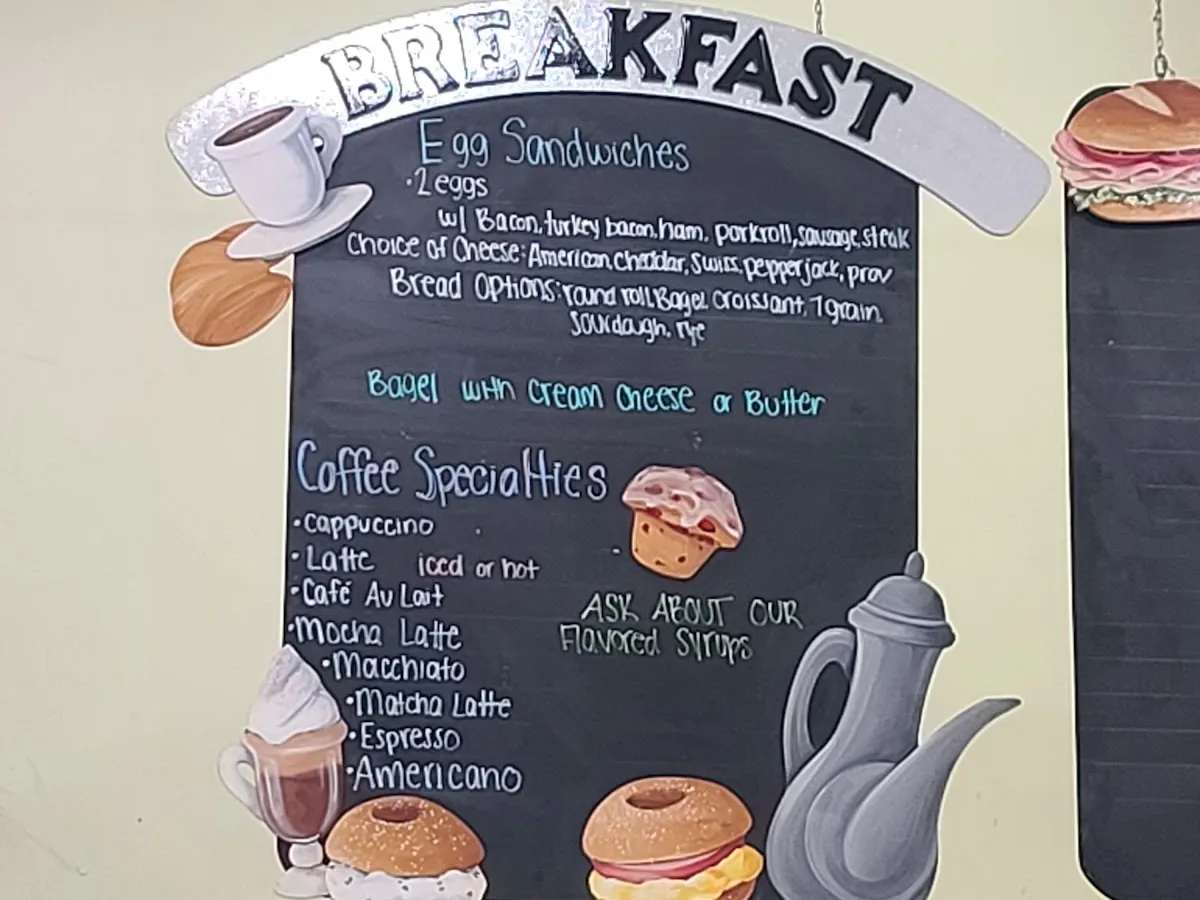 BREAKFAST
Egg Sandwiches
•2 eggs
w/ Bacon, turkey bacon, ham, porkroll, sausage, steak
Choice of Cheese: American, cheddar, Swiss, pepper jack, prov
Bread Options: round roll, Bagel, croissant, 7 grain,
Sourdough, rye
Bagel with Cream Cheese or Butter
Coffee Specialties
•cappuccino
•Latte iced or hot
•Café Au Lait
•Mocha Latte
•Macchiato
•Matcha Latte
•Espresso
•Americano
ASK ABOUT OUR
Flavored Syrups